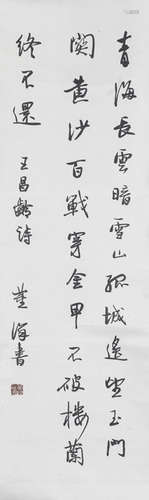 青海長雲暗雪山孤城遙望玉門
関黄沙百戰穿金甲不破樓蘭
終不還 王昌齡诗 董海書